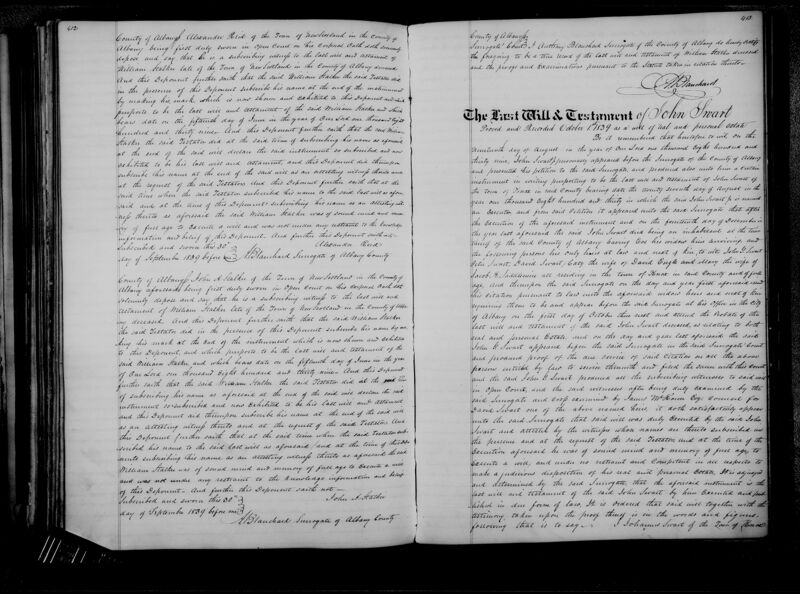 412
County of Albany ss Alexander Reid of the Town of New Scotland in the County of
Albany being first duly sworn in Open Court on his Corporal Oath doth solemnly
depose and say that he is a subscribing witness to the last will and testament of
William Hatken late of the Town of New Scotland in the County of Albany deceased
And this Deponent further saith that the said William Hatken the said Testator did
in the presence of this Deponent subscribe his name at the end of the instrument
by making his mark which is now shewn and exhibited to this Deponent and which
purports to be the last will and testament of the said William Hatken and which
bears date on the fifteenth day of June in the year of Our Lord one thousand eight
hundred and thirty nine. And this Deponent further saith that the said William
Hatken the said Testator did at the said time of subscribing his name as aforesaid
at the end of the said will declare the said instrument so subscribed and now
exhibited to be his last will and testament, and this Deponent did thereupon
subscribe his name at the end of the said will as an attesting witness thereto and
at the request of the said Testator. And this Deponent further saith that at the
said time when the said Testator subscribed his name to the said last will as afore
said and at the time of this Deponent subscribing his name as an attesting wit
ness thereto as aforesaid the said William Hatken was of sound mind and mem
ory of full age to Execute a will and was not under any restraint to the knowledge
information and belief of this Deponent. And further this Deponent saith not
Subscribed and sworn this 30th Alexander Reid
day of September 1839 before me A Blanchard Surrogate of Albany County
County of Albany ss John A. Hatken of the Town of New Scotland in the County of
Albany aforesaid being first duly sworn in Open Court on his Corporal Oath doth
solemnly depose and say that he is a subscribing witness to the last will and
testament of William Hatken late of the Town of New Scotland in the County of Alba
ny deceased. And this Deponent further saith that the said William Hatken
the said Testator did in the presence of this Deponent subscribe his name by ma
king his mark at the end of the instrument which is now shewn and exhibited
to this Deponent, and which purports to be the last will and testament of the
said William Hatken and which bears date on the fifteenth day of June in the year
of Our Lord one thousand eight hundred and thirty nine. And this Deponent
further saith that the said William Hatken the said Testator did at the said time
of subscribing his name as aforesaid at the end of the said will declare the said
instrument so subscribed and now exhibited to be his last will and testament
and this Deponent did thereupon subscribe his name at the end of the said will
as an attesting witness thereto and at the request of the said Testator. And
this Deponent further saith that at the said time when the said Testator subs
cribed his name to the said last will as aforesaid and at the time of this Depo
nents subscribing his name as an attesting witness thereto as aforesaid the said
William Hatken was of sound mind and memory of full age to Execute a will
and was not under any restraint to the knowledge information and belief
of this Deponent. And further this Deponent saith not
Subscribed and sworn this 30th John A. Hatken
day of September 1839 before me
A Blanchard Surrogate of Albany County
413
County of Albany ss
Surrogate Court I Anthony Blanchard Surrogate of the County of Albany do hereby certify
the foregoing to be a true record of the last will and testament of William Hatken deceased
and the proofs and examinations pursuant to the Statute taken in relation thereto
A Blanchard
The Last Will & Testament of John Swart
Proved and Recorded October 1st 1839 as a will of real and personal estate
Be it remembered that heretofore to wit on the
Nineteenth day of August in the year of Our Lord one thousand eight hundred and
thirty nine, John Swart Jr personally appeared before the Surrogate of the County of Albany
and presented his petition to the said Surrogate, and produced also unto him a certain
instrument in writing purporting to be the last will and testament of John Swart of
the town of Knox in said County bearing date the twenty seventh day of August in the
year one thousand eight hundred and thirty in which the said John Swart Jr is named
an Executor and from said Petition it appeared unto the said Surrogate that after
the Execution of the aforesaid instrument and on the fourteenth day of December in
the year last aforesaid the said John Swart died being an inhabitant at the time
thereof of the said County of Albany leaving his widow him surviving and
the following persons his only heirs at law and next of kin, to wit
John Swart David Swart, Caty the wife of David Engle and Mary the wife of
Jacob H. all residing in the town of Knox in said County and of full
age, and thereupon the said Surrogate on the day and year first aforesaid issued
his citation pursuant to law unto the aforesaid widow heirs and next of kin
requiring them to be and appear before the said Surrogate at his Office in the City
of Albany on the first day of October then next and attend the Probate of the
last will and testament of the said John Swart deceased, as relating to both
real and personal Estate, and on the day and year last aforesaid the said
John Swart appeared before the said Surrogate in the said Surrogate Court
and produced proof of the due service of said Citation on all the above
persons entitled by law to service thereof and filed the same with this Court
and the said John Swart produced all the subscribing witnesses to said will
in Open Court, and the said witnesses after being duly examined by the
said Surrogate and cross examined by James McKown Esqr counsel for
David Swart one of the above named heirs it doth satisfactorily appear
unto the said Surrogate that said will was duly Executed by the said John
Swart and attested by the witnesses whose names are thereto subscribed in
the presence and at the request of the said Testator and at the time of the
Execution aforesaid he was of sound mind and memory of full age, to
Execute a will, and under no restraint and Competent in all respects to
make a judicious disposition of his real and personal Estate. It is adjudged
and determined by the said Surrogate, that the aforesaid instrument is the
last will and testament of the said John Swart by him Executed and pub
lished in due form of law, It is ordered that said will together with the
testimony taken upon the proof thereof is in the words and figures
following that is to say I Johannes Swart of the Town of